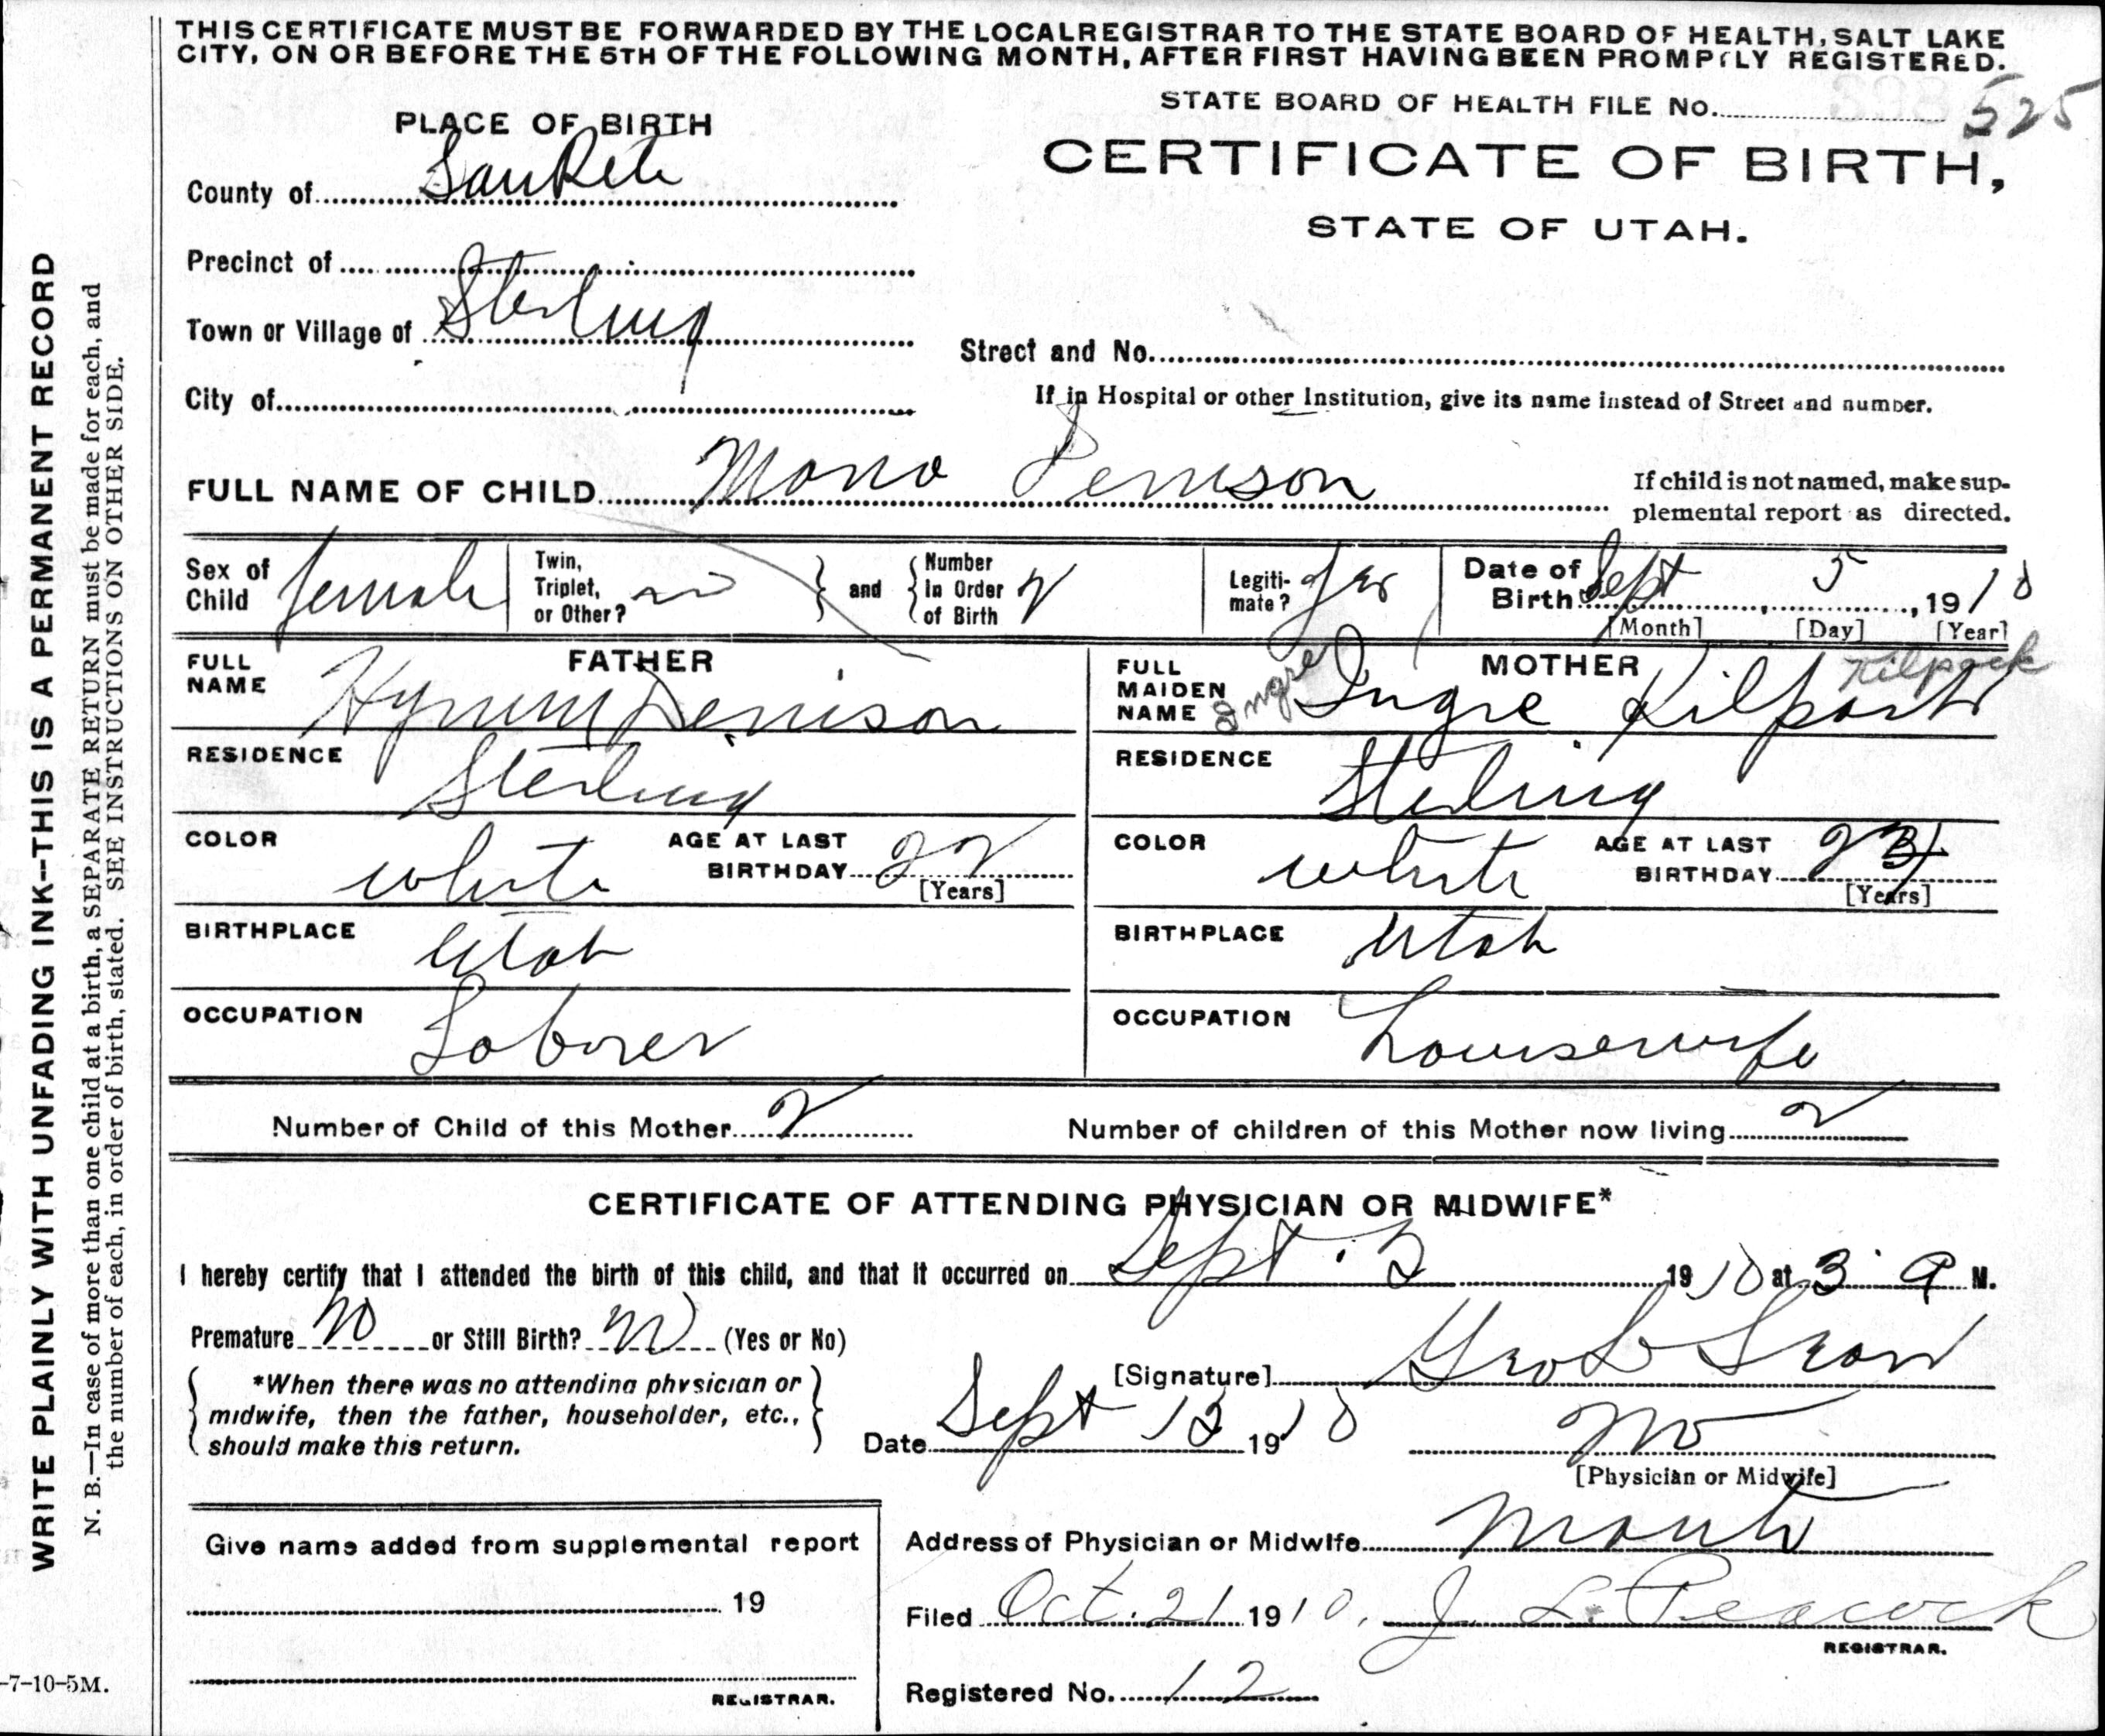 THIS CERTIFICATE MUST BE FORWARDED BY THE LOCAL REGISTRAR TO THE STATE BOARD OF HEALTH, SALT LAKE
CITY, ON OR BEFORE THE 5TH OF THE FOLLOWING MONTH, AFTER FIRST HAVING BEEN PROMPTLY REGISTERED.
STATE BOARD OF HEALTH FILE No. 525
PLACE OF BIRTH
CERTIFICATE OF BIRTH,
County of SanPete
STATE OF UTAH.
Precinct of
Town or Village of Sterling
Street and No.
City of
If in Hospital or other Institution, give its name instead of Street and number.
FULL NAME OF CHILD Mona Denison
If child is not named, make sup-
plemental report as directed.
Sex of Child female Twin, Triplet, or Other? no and Number In Order of Birth 2 Legiti-mate? yes Date of Birth Sept 5, 1910
[Month] [Day] [Year]
FATHER
MOTHER
FULL NAME Hyrum Denison
FULL MAIDEN NAME Ingre Kilpack
Kilpack
RESIDENCE Sterling
RESIDENCE Sterling
COLOR white AGE AT LAST BIRTHDAY 22 [Years]
COLOR white AGE AT LAST BIRTHDAY 23 [Years]
BIRTHPLACE Utah
BIRTHPLACE Utah
OCCUPATION Laborer
OCCUPATION housewife
Number of Child of this Mother 2 Number of children of this Mother now living 2
CERTIFICATE OF ATTENDING PHYSICIAN OR MIDWIFE*
I hereby certify that I attended the birth of this child, and that it occurred on Sept. 5 1910 at 3 A M.
Premature No or Still Birth? No (Yes or No)
*When there was no attending physician or
midwife, then the father, householder, etc.,
should make this return.
[Signature] Geo L
Date Sept 13 1910
[Physician or Midwife]
Give name added from supplemental report
19
REGISTRAR.
Address of Physician or Midwife Manti
Filed Oct. 21 1910. J. L. Peacock
REGISTRAR.
Registered No. 12
WRITE PLAINLY WITH UNFADING INK--THIS IS A PERMANENT RECORD
N. B.—In case of more than one child at a birth, a SEPARATE RETURN must be made for each, and
the number of each, in order of birth, stated. SEE INSTRUCTIONS ON OTHER SIDE.
-7-10-5M.